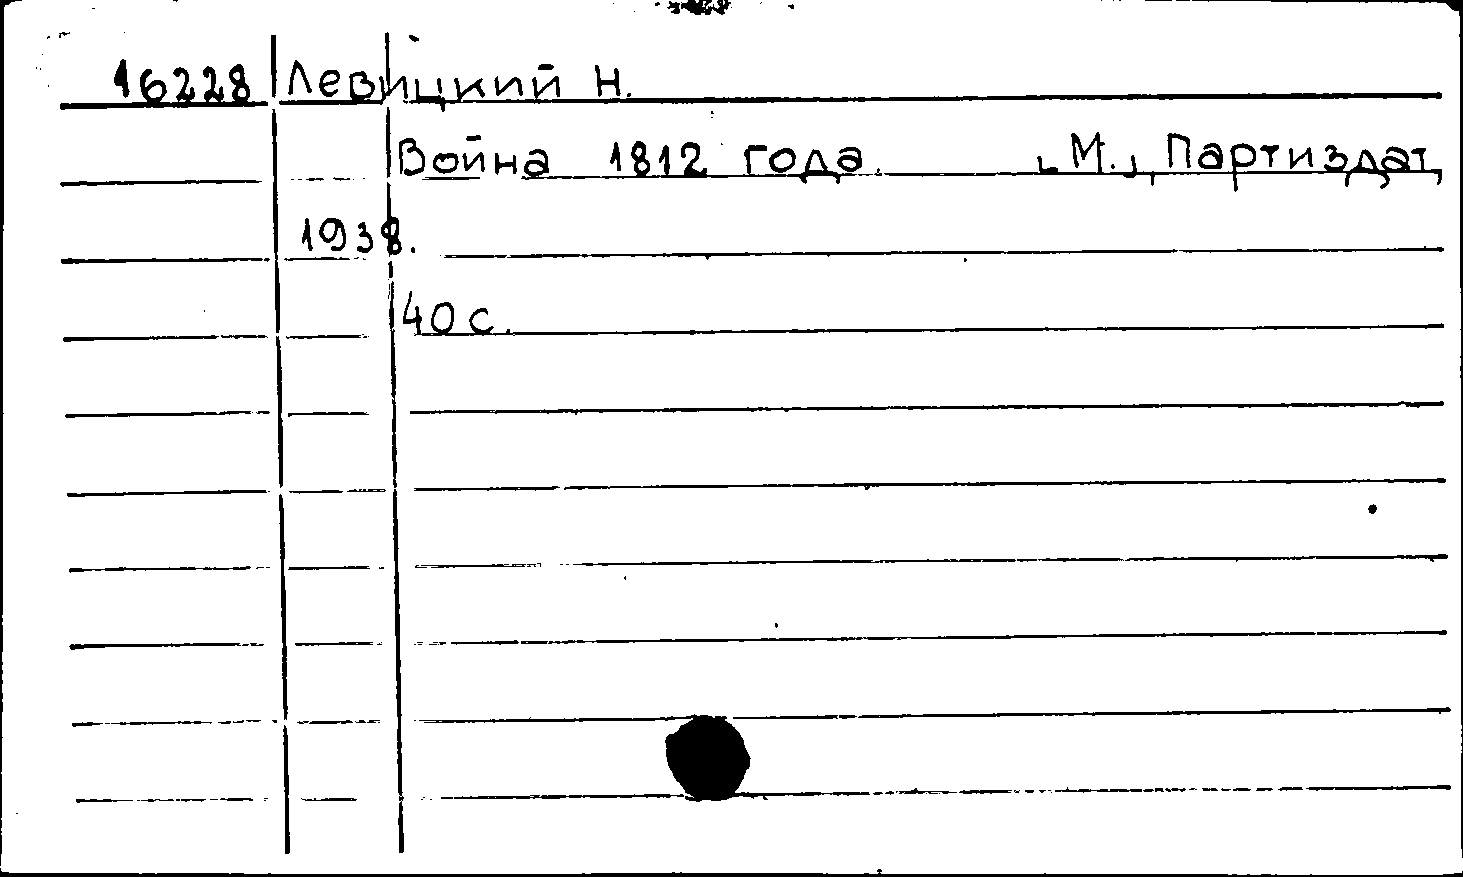 16228 Левицкий Н.
Война 1812 года. [М.], Партиздат,
1938.
40 с.